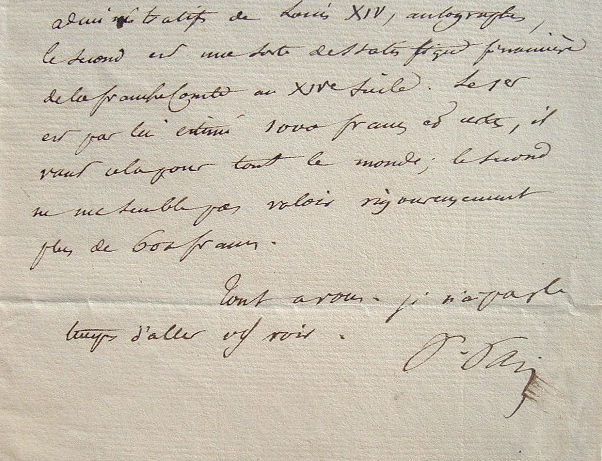 administratifs de Louis XIV, autographes,
le second est une sorte de Statistique financière
de la franche Comté au XIVe Siècle. Le 1er
est par lui estimé 1000 francs et certes, il
vaut cela pour tout le monde; le second
ne me semble pas valoir rigoureusement
plus de 600 francs.
Tout a vous. je n'ai pas le
temps d'aller vs voir.